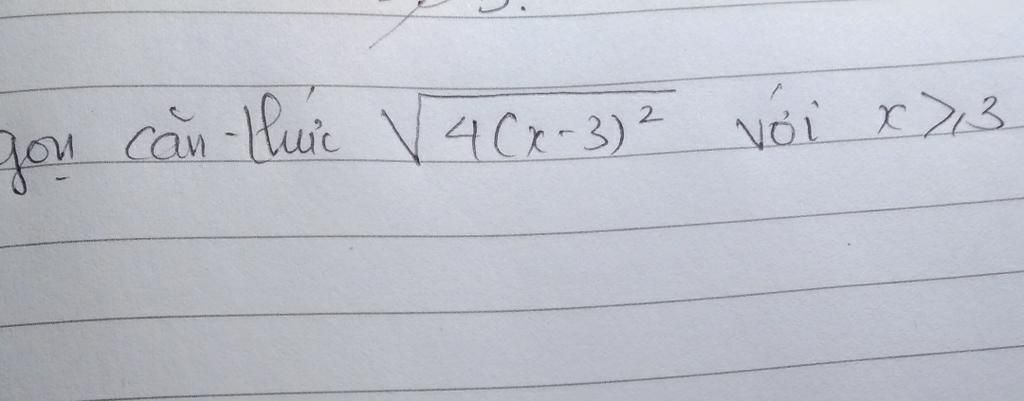 gọn căn thức √4(x-3)² với x ⩾ 3